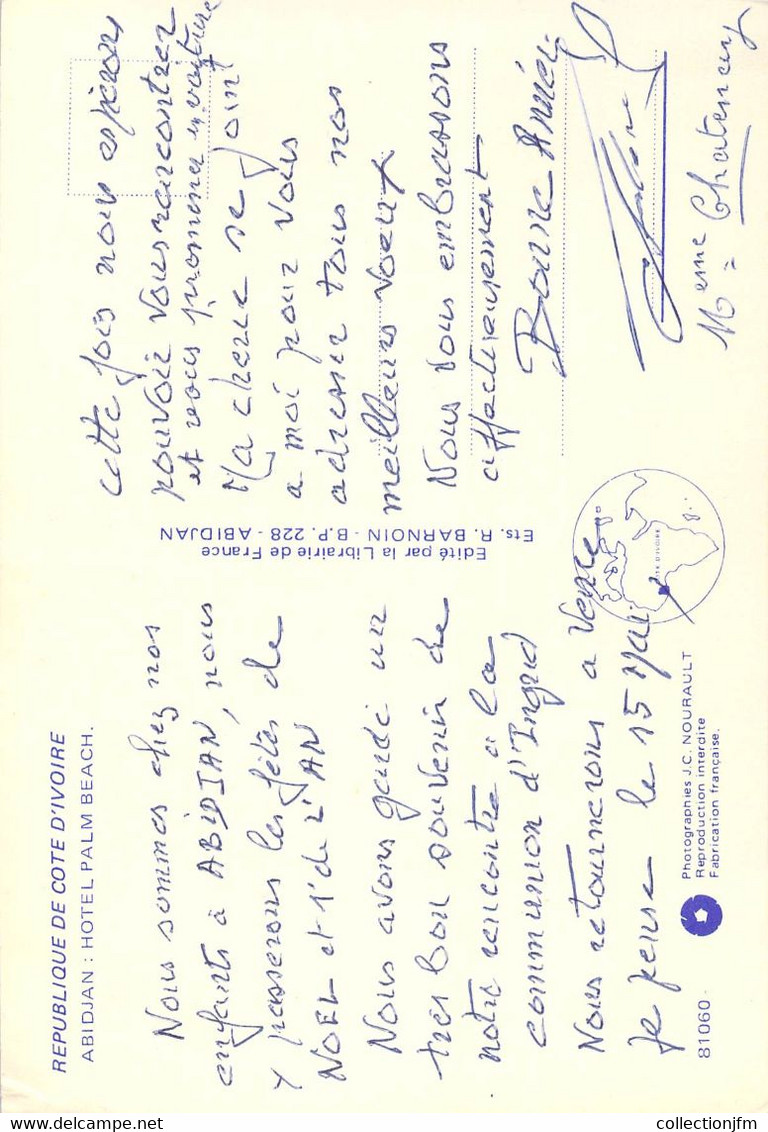 REPUBLIQUE DE COTE D'IVOIRE
ABIDJAN : HOTEL PALM BEACH.
Nous sommes chez nos
enfants à ABIDJAN, nous
y passerons les fêtes de
NOEL et 1' de L'AN
Nous avons gardé un
très bon souvenir de
notre rencontre à la
communion d'Ingrid
Nous retournerons a Vence
je pense le 15 Mai
cette fois nous espérons
pouvoir vous rencontrer
et vous promener en voiture
Ma cherie se joint
a moi pour vous
adresser tous nos
meilleurs voeux
Nous vous embrassons
affectueusement
Bonne Année
Meme Chatenay
Edité par la Librairie de France
Ets. R. BARNOIN - B.P. 228 - ABIDJAN
CÔTE D'IVOIRE
81060
Photographies J.C. NOURAULT
Reproduction interdite
Fabrication française.
delcampe.net
collectionjfm